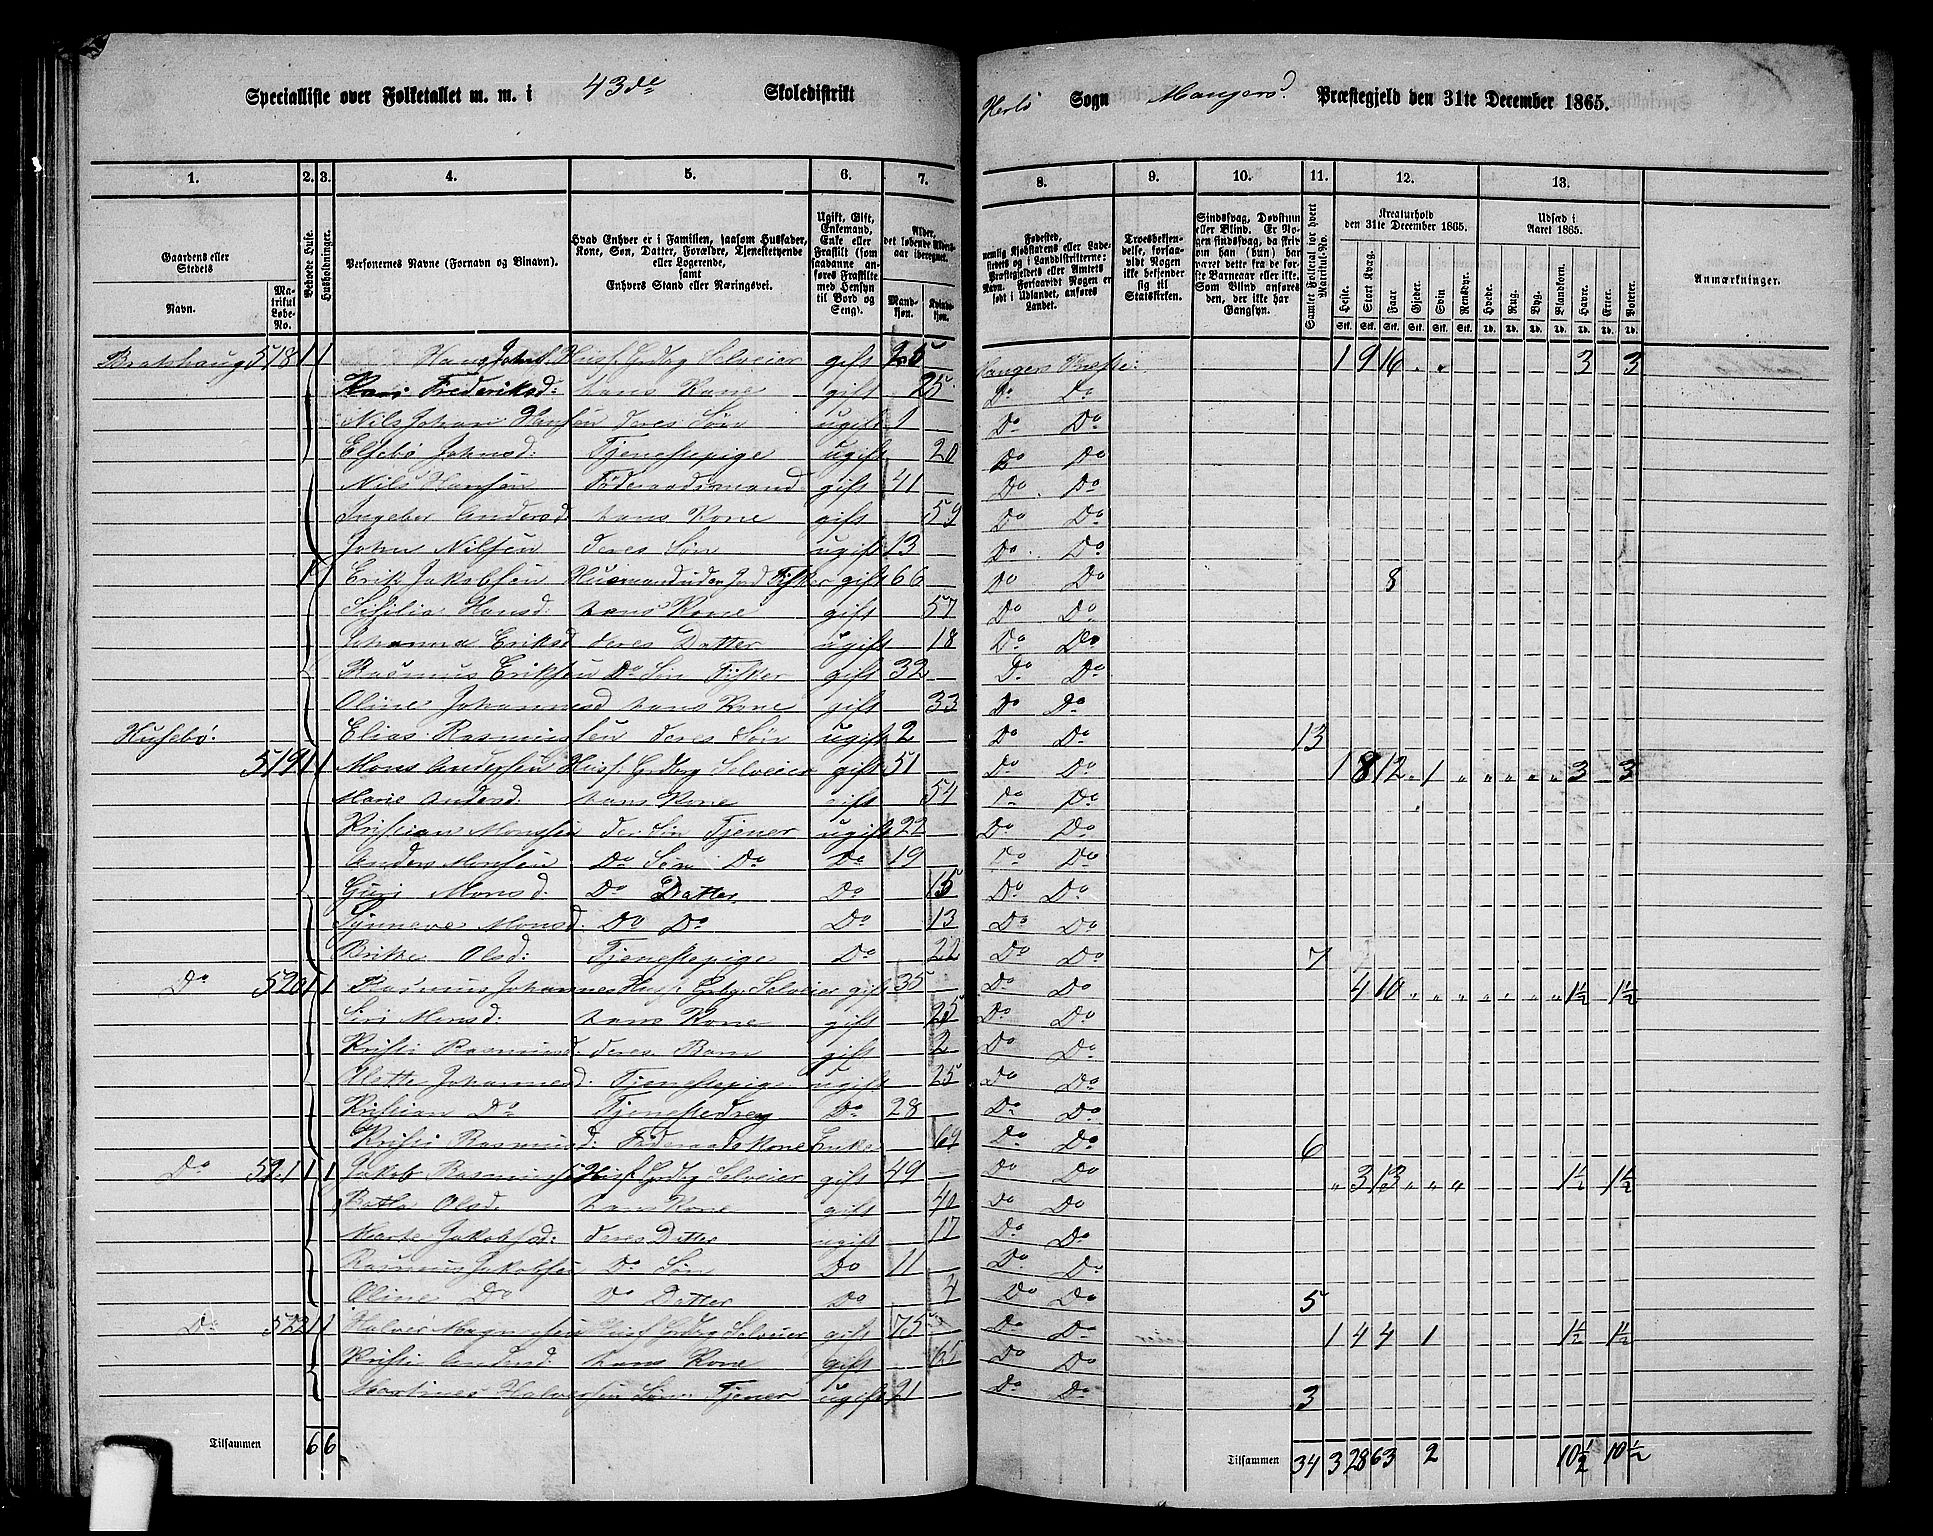 Specialliste over Folketallet m. m. i 43de Skoledistrikt
Herlø Sogn Mangers Præstegjeld den 31te December 1865.
1. 2. 3. 4. 5. 6. 7. 8. 9. 10. 11. 12. 13.
Gaardens eller Stedets
Navn.
Matrikul Løbe-No.
Beboede Huse.
Husholdninger.
Personernes Navne (Fornavn og Binavn).
Hvad Enhver er i Familien, saasom Husfader, Kone, Søn, Datter, Forældre, Tjenestetyende eller Logerende,
samt
Enhvers Stand eller Næringsvei.
Ugift, Gift, Enkemand, Enke eller Fraskilt (som saadanne anføres Fraskilte med Hensyn til Bord og Seng).
Alder, det løbende Aldersaar iberegnet.
Mandkjøn. Kvindekjøn.
Fødested, nemlig Kjøbstadens eller Ladestedets eller i Landdistrikterne: Præstegjeldets eller Amtets Navn. Forsaavidt Nogen er født i Udlandet, anføres Landet.
Troesbekjendelse, forsaavidt Nogen ikke bekjender sig til Statskirken.
Sindssvag, Døvstum eller Blind. Er Nogen sindssvag, da skrives dette fra de første Barneaar eller ikke. Som Blind anføres den, der ikke har Gangsyn.
Samlet Folketal for hvert Matrikul-No.
Kreaturhold den 31te December 1865.
Heste. Stort Kvæg. Faar. Gjeder. Svin. Rensdyr.
Udsæd i Aaret 1865.
Hvede. Rug. Byg. Blandkorn. Havre. Erter. Poteter.
Anmærkninger.
Brakshaug 518 1 1 Hans Johns. Husf. Grdbg Selveier gift 25 Mangers Præste: 1 9 16 3 3
Kari Frederiksd: hans Kone gift 25 Do Do
Nils Johan Hansen deres Søn ugift 1 Do Do
Elsebø Johnsd: Tjenestepige ugift 20 Do Do
Nils Hansen Føderaadsmand gift 41 Do Do
Ingebor Andersd: hans Kone gift 59 Do Do
John Nilsen deres Søn ugift 13 Do Do
1 1 Erik Jakobsen Husmand uden Jord Fisker gift 66 Do Do 8
Sisilia Hansd: hans Kone gift 57 Do Do
Johanna Eriksd deres Datter ugift 18 Do Do
Rasmus Eriksen Do Søn Fisker gift 32 Do Do
Oline Johannesd hans Kone gift 33 Do Do
Husebø. Elias Rasmussen deres Søn ugift 2 Do Do 13
519 1 1 Mons Andersen Husf. Grdbg Selveier gift 51 Do Do 1 8 12 1 3 3
Marie Andersd. hans Kone gift 54 Do Do
Kristian Monssen deres Søn Tjener ugift 22 Do Do
Anders Monsen Do Søn Do Do 19 Do Do
Guri Monsd. Do Datter Do 15 Do Do
Synneve Monsd. Do Do Do 13 Do Do
Brithe Olsd: Tjenestepige Do 22 Do Do 7
Do 520 1 1 Rasmus Johannes Husf. Grdbg. Selveier gift 35 Do Do 4 10 1½ 1½
Siri Monsd: hans Kone gift 25 Do Do
Kristi Rasmusd. deres Barn gift 2 Do Do
Johannesd. Tjenestepige ugift 25 Do Do
Kristian Do Tjenestedreng Do 28 Do Do
Kristi Rasmusd: Føderaadskone Enke 69 Do Do 6
Do 521 1 1 Jakob Rasmussen Husf. Grdbg Selveier gift 49 Do Do 3 13 1½ 1½
Olsd. hans Kone gift 40 Do Do
Marte Jakobsd: deres Datter ugift 17 Do Do
Rasmus Jakobsen Do Søn Do 11 Do Do
Oline Do Do Datter Do 4 Do Do 5
Do 522 1 1 Halver Magnesen Husf. Grdbg Selveier gift 75 Do Do 1 4 4 1 1½ 1½
Kristi Andersd hans Kone gift 65 Do Do
Martines Halversen Søn Tjener ugift 21 Do Do 3
Tilsammen 6 6 Tilsammen 34 3 28 63 2 10½ 10½